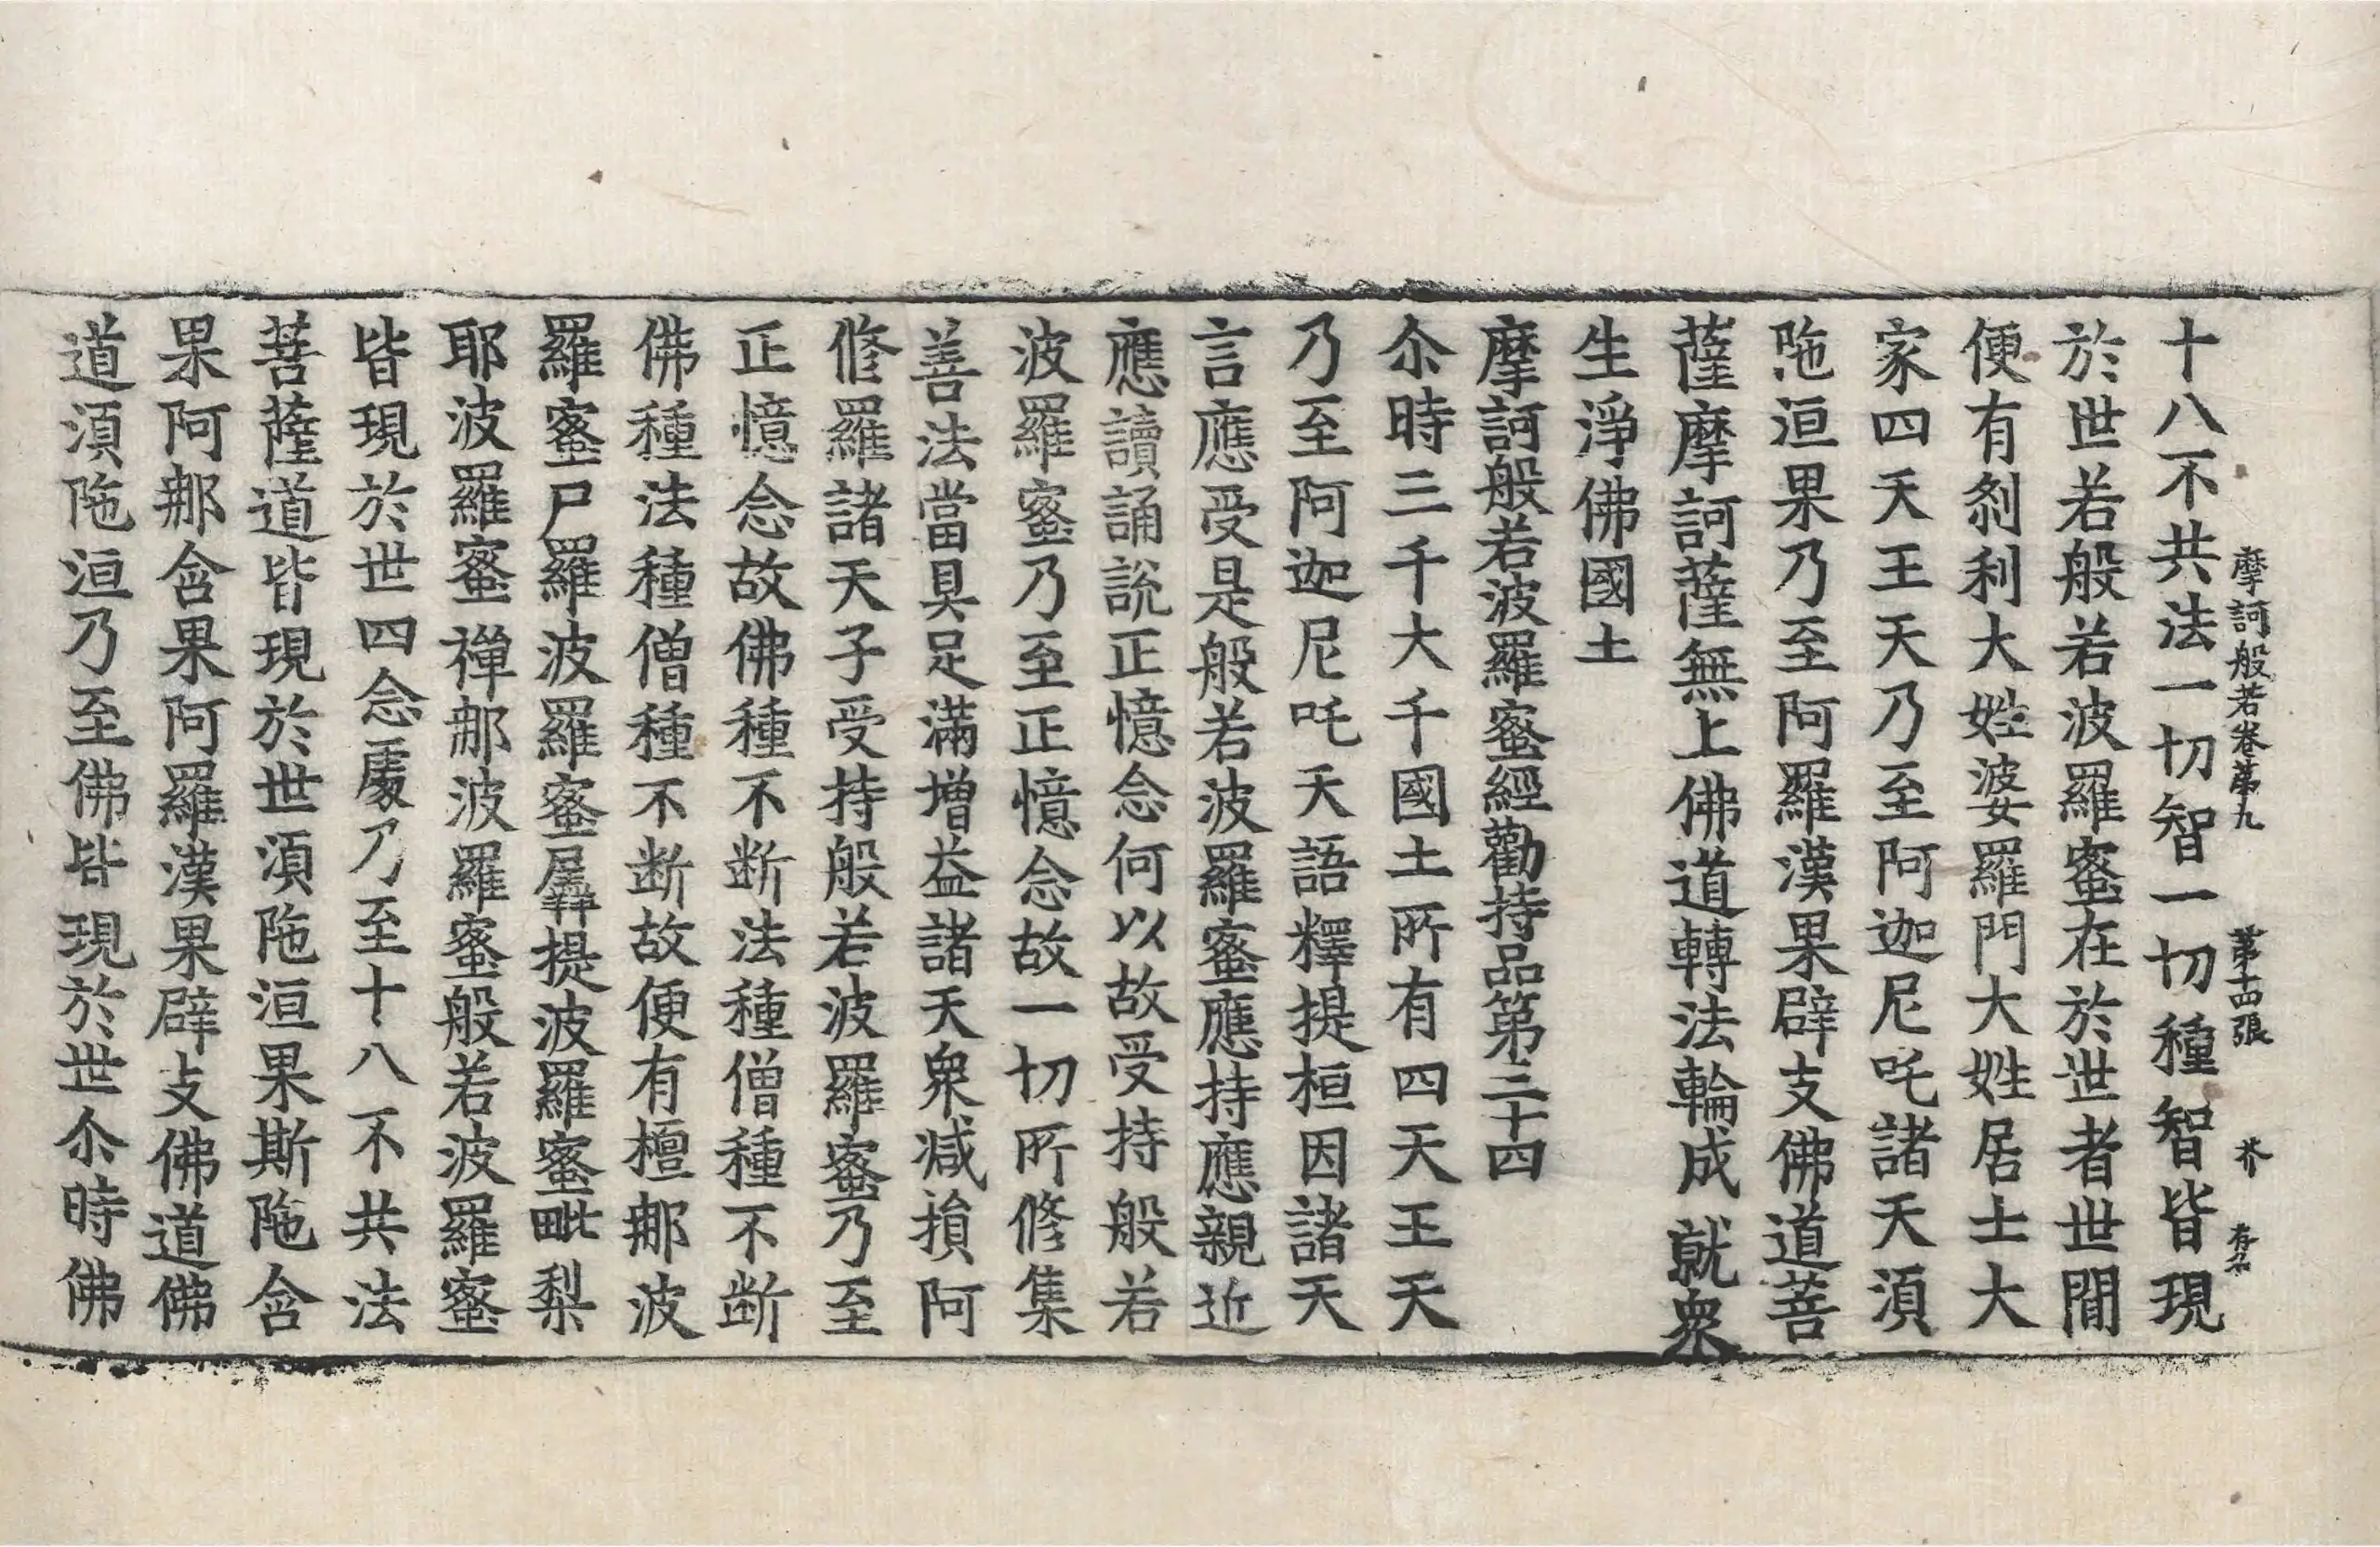 摩訶般若卷第九 第十四張 芥
十八不共法一切智一切種智皆現
於世若般若波羅蜜在於世者世間
便有刹利大姓婆羅門大姓居士大
家四天王天乃至阿迦尼吒諸天須
陁洹果乃至阿羅漢果辟支佛道菩
薩摩訶薩無上佛道轉法輪成就衆
生淨佛國土
摩訶般若波羅蜜經勸持品第三十四
尒時三千大千國土所有四天王天
乃至阿迦尼吒天語釋提桓因諸天
言應受是般若波羅蜜應持應親近
應讀誦說正憶念何以故受持般若
波羅蜜乃至正憶念故一切所修集
善法當具足滿增益諸天衆減損阿
修羅諸天子受持般若波羅蜜乃至
正憶念故佛種不断法種僧種不断
佛種法種僧種不断故便有檀那波
羅蜜尸羅波羅蜜羼提波羅蜜毗梨
耶波羅蜜禪那波羅蜜般若波羅蜜
皆現於世四念處乃至十八不共法
菩薩道皆現於世須陁洹果斯陁含
果阿那含果阿羅漢果辟支佛道佛
道須陁洹乃至佛皆現於世尒時佛